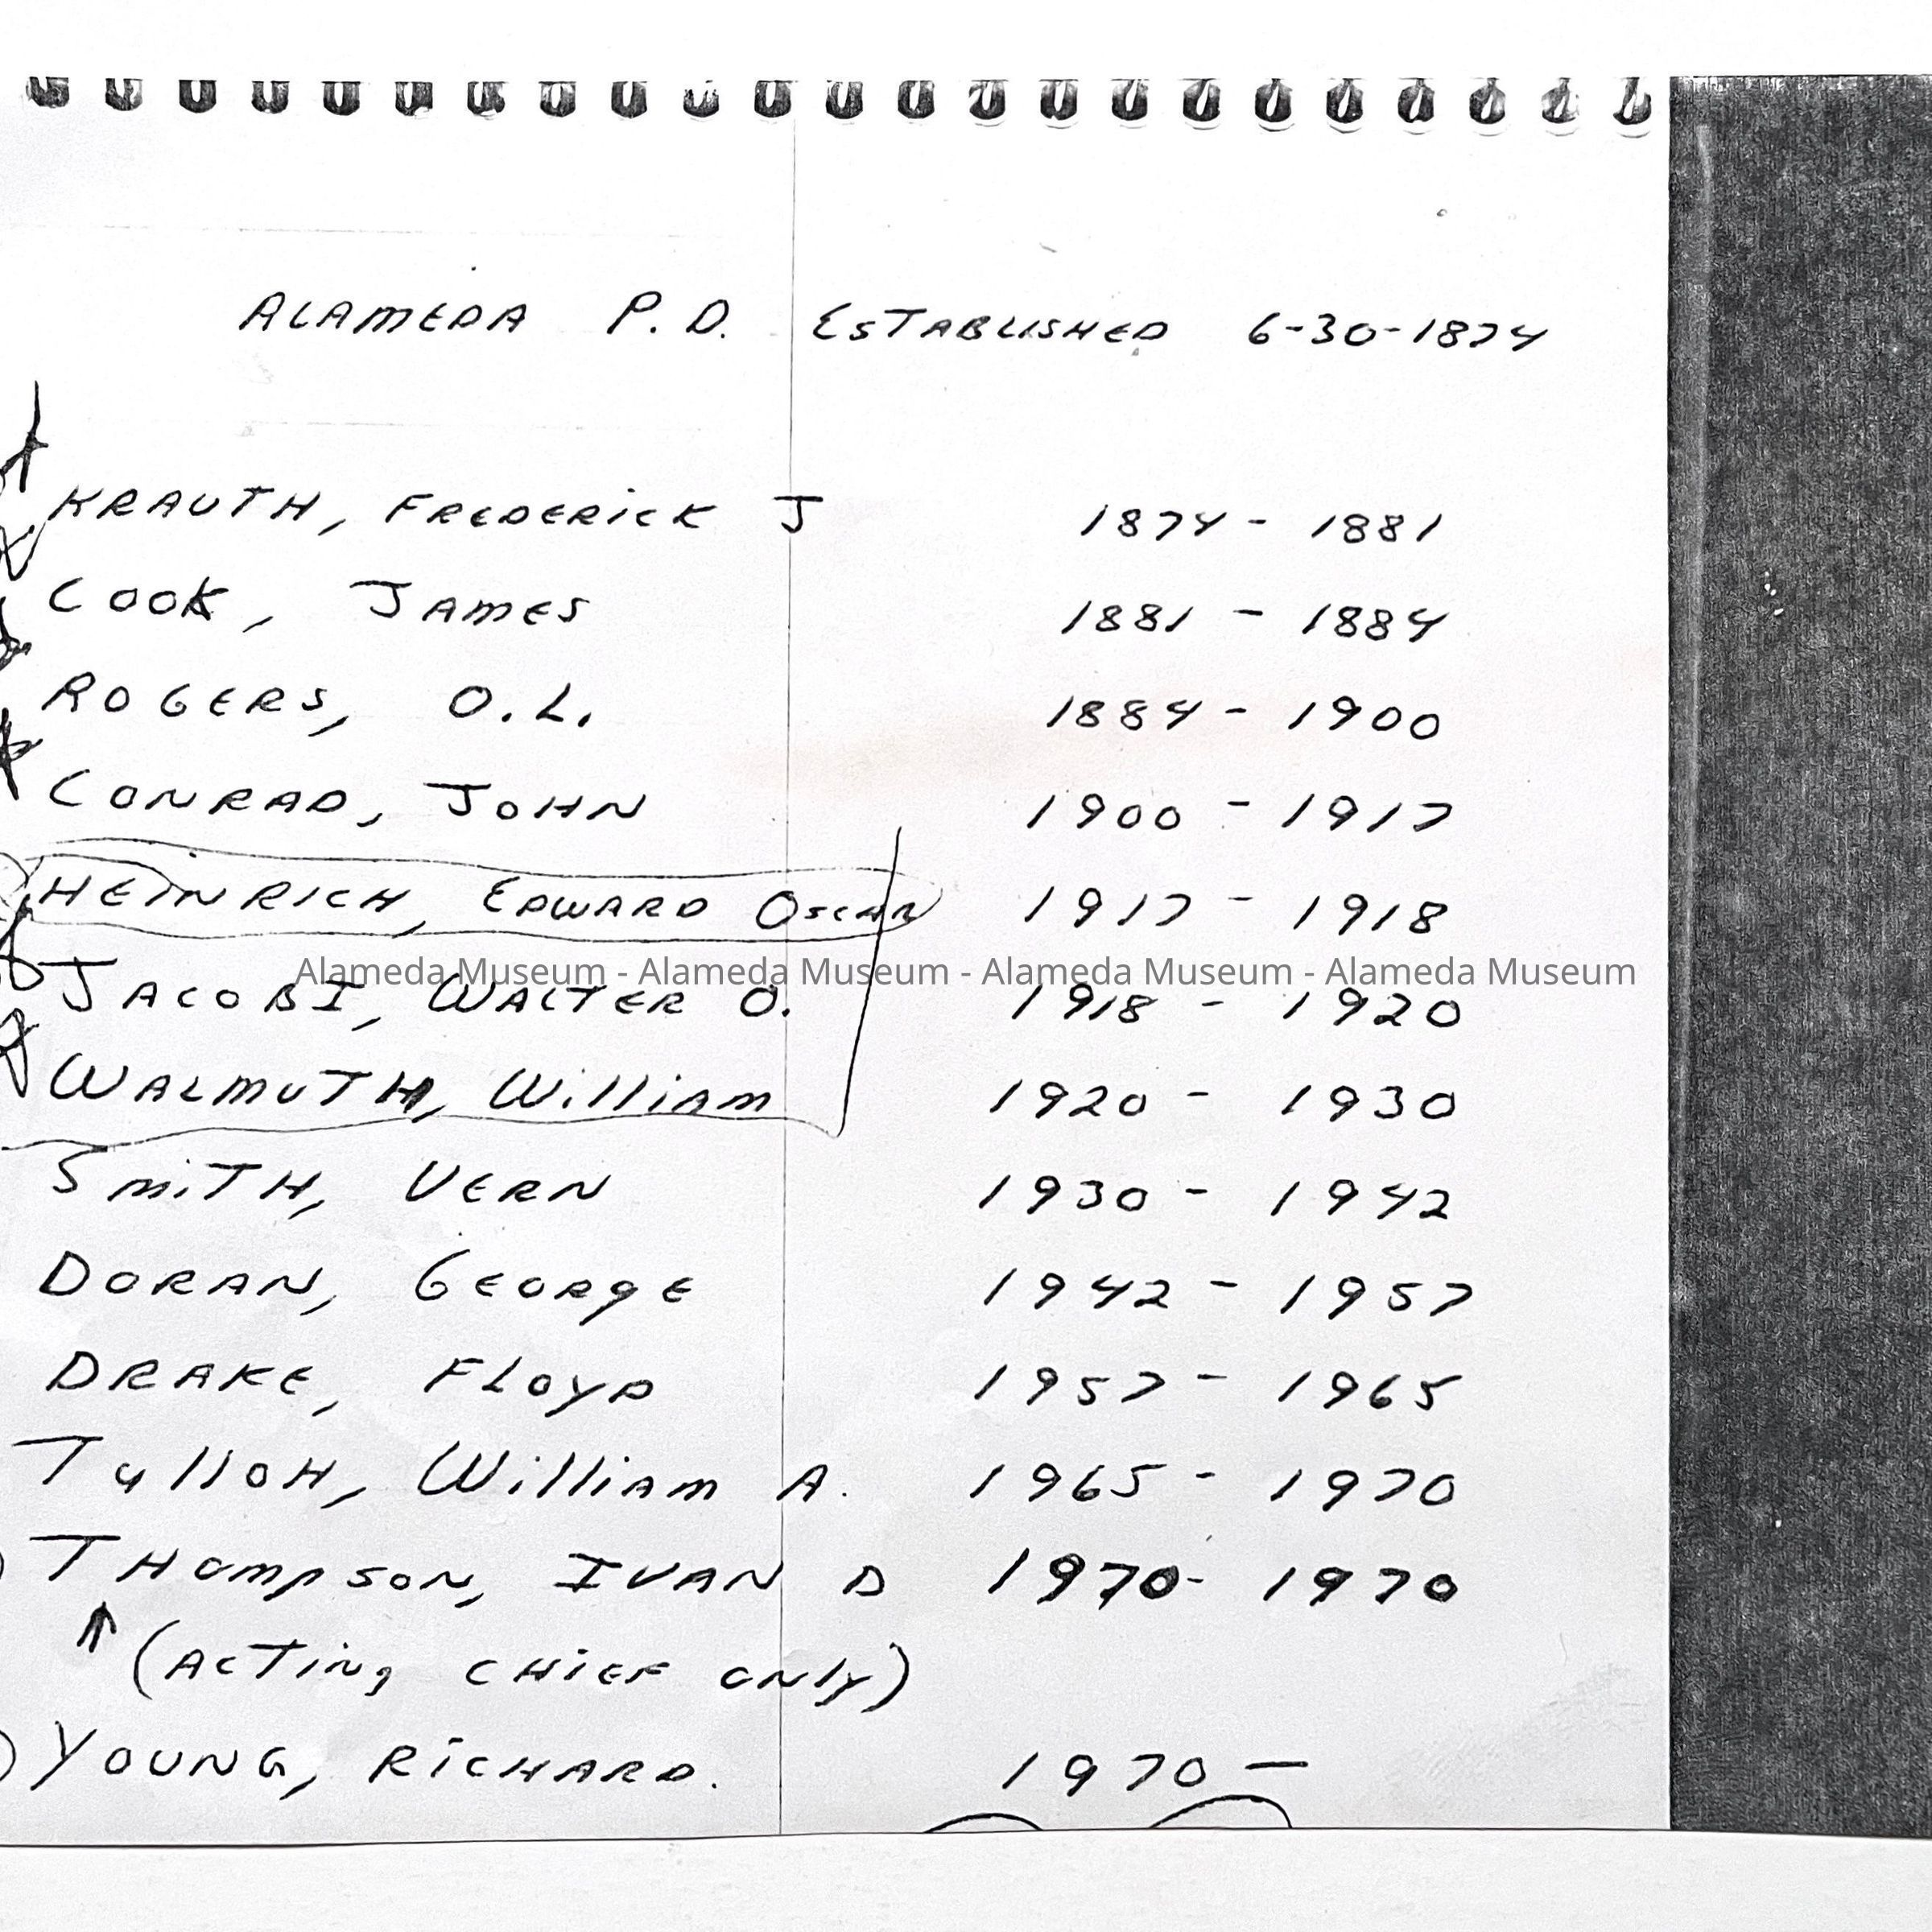 ALAMEDA P.D. ESTABLISHED 6-30-1874
KRAUTH, FREDERICK J 1874 - 1881
COOK, JAMES 1881 - 1884
ROGERS, O.L. 1884 - 1900
CONRAD, JOHN 1900 - 1917
HEINRICH, EDWARD OSCAR 1917 - 1918
Alameda Museum - Alameda Museum - Alameda Museum - Alameda Museum
JACOBI, WALTER O. 1918 - 1920
WALMUTH, William 1920 - 1930
SMITH, VERN 1930 - 1942
DORAN, GEORGE 1942 - 1957
DRAKE, FLOYD 1957 - 1965
TulloH, William A. 1965 - 1970
THOMPSON, IVAN D 1970 - 1970
(ACTING CHIEF ONLY)
YOUNG, RICHARD. 1970 -